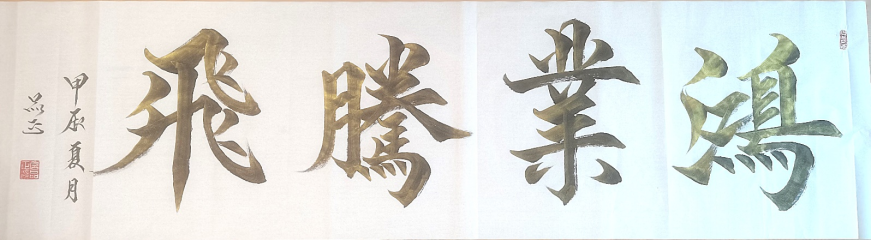 鴻業騰飛
甲辰夏月